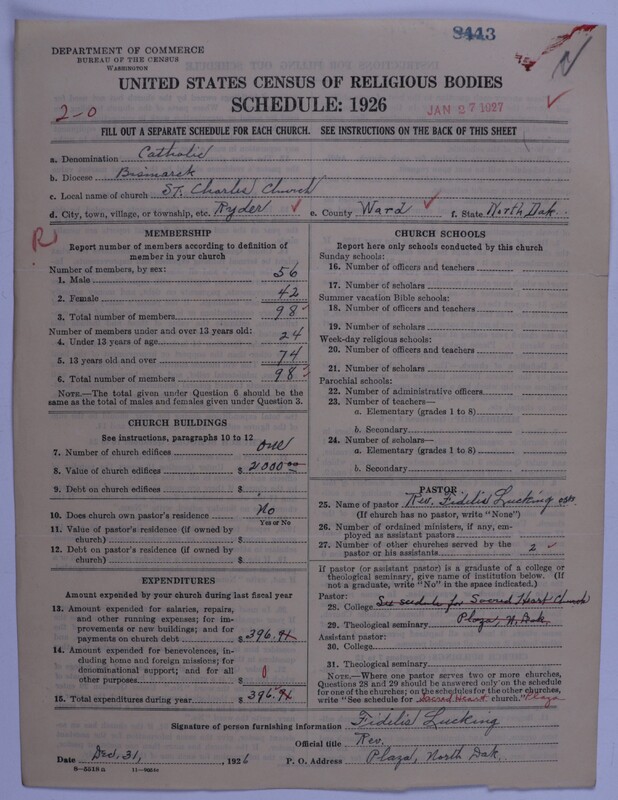 8443
DEPARTMENT OF COMMERCE
BUREAU OF THE CENSUS
WASHINGTON
UNITED STATES CENSUS OF RELIGIOUS BODIES
SCHEDULE: 1926
2-0
JAN 27 1927
FILL OUT A SEPARATE SCHEDULE FOR EACH CHURCH. SEE INSTRUCTIONS ON THE BACK OF THIS SHEET
a. Denomination Catholic
b. Diocese Bismarck
c. Local name of church St. Charles Church
d. City, town, village, or township, etc. Ryder e. County Ward f. State North Dak.
R
MEMBERSHIP
Report number of members according to definition of
member in your church
Number of members, by sex:
1. Male 56
2. Female 42
3. Total number of members 98
Number of members under and over 13 years old:
4. Under 13 years of age 24
5. 13 years old and over 74
6. Total number of members 98
NOTE.—The total given under Question 6 should be
same as the total of males and females given under Question 3.
CHURCH BUILDINGS
See instructions, paragraphs 10 to 12
7. Number of church edifices one
8. Value of church edifices $ 2000 00
9. Debt on church edifices $
10. Does church own pastor's residence No
Yes or No
11. Value of pastor's residence (if owned by
church) $
12. Debt on pastor's residence (if owned by
church) $
EXPENDITURES
Amount expended by your church during last fiscal year
13. Amount expended for salaries, repairs,
and other running expenses; for im-
provements or new buildings; and for
payments on church debt $ 396.94
14. Amount expended for benevolences, in-
cluding home and foreign missions; for
denominational support; and for all
other purposes $ 0
15. Total expenditures during year $ 396.94
CHURCH SCHOOLS
Report here only schools conducted by this church
Sunday schools:
16. Number of officers and teachers
17. Number of scholars
Summer vacation Bible schools:
18. Number of officers and teachers
19. Number of scholars
Week-day religious schools:
20. Number of officers and teachers
21. Number of scholars
Parochial schools:
22. Number of administrative officers
23. Number of teachers—
a. Elementary (grades 1 to 8)
b. Secondary
24. Number of scholars—
a. Elementary (grades 1 to 8)
b. Secondary
PASTOR
25. Name of pastor Rev. Fidelis Lucking
(If church has no pastor, write "None")
26. Number of ordained ministers, if any, em-
ployed as assistant pastors
27. Number of other churches served by the
pastor or his assistants 2
If pastor (or assistant pastor) is a graduate of a college or
theological seminary, give name of institution below. (If
not a graduate, write "No" in the space indicated.)
Pastor:
28. College See sedule for Sacred Heart Church
29. Theological seminary Plaza, N. Dak.
Assistant pastor:
30. College
31. Theological seminary
NOTE.—Where one pastor serves two or more churches,
Questions 28 and 29 should be answered only on the schedule
for one of the churches; on the schedules for the other churches,
write "See schedule for Sacred Heart church." Plaza
Signature of person furnishing information Fidelis Lucking
Official title Rev.
Date Dec. 31, 1926 P. O. Address Plaza, North Dak.